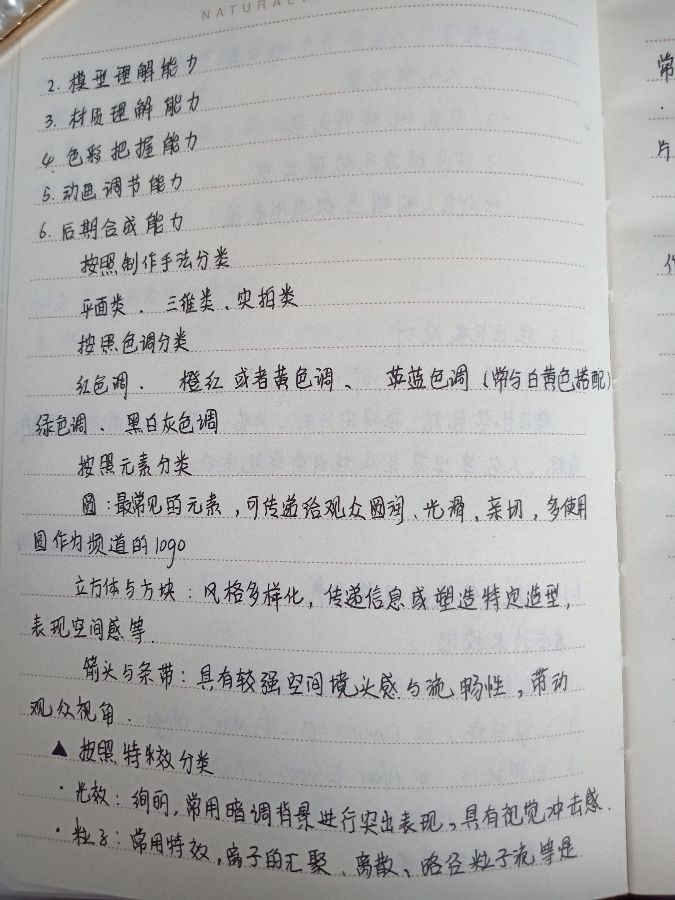 NATURAL
2. 模型理解能力
3. 材质理解能力
4. 色彩把握能力
5. 动画调节能力
6. 后期合成能力
按照制作手法分类
平面类、三维类、实拍类
按照色调分类
红色调、橙红或者黄色调、蓝色调（常与白黄色搭配）
绿色调、黑白灰色调
按照元素分类
圆：最常见的元素，可传递给观众圆润、光滑、亲切，多使用
圆作为频道的logo
立方体与方块：风格多样化，传递信息或塑造特定造型，
表现空间感等.
箭头与条带：具有较强空间镜头感与流畅性，带动
观众视角.
▲ 按照特效分类
·光效：绚丽，常用暗调背景进行突出表现，具有视觉冲击感.
·粒子：常用特效，离子的汇聚、离散、路径粒子流等是
常
片